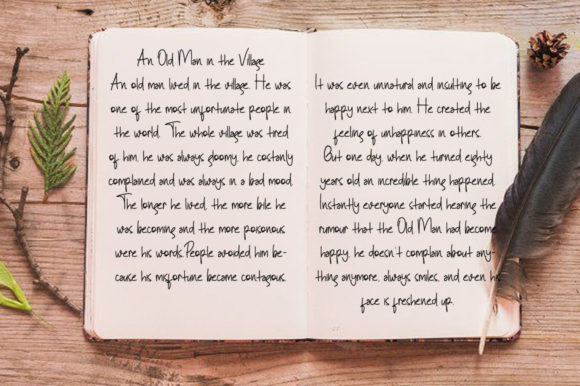 An Old Man in the Village
An old man lived in the village. He was
one of the most unfortunate people in
the world. The whole village was tired
of him, he was always gloomy, he costanly
complained and was always in a bad mood.
The longer he lived, the more bile he
was becoming and the more poisonous
were his words.People avoided him be-
cause his misfortune became contagious.
It was even unnatural and insulting to be
happy next to him. He created the
feeling of unhappiness in others.
But one day, when he turned eighty
years old an incredible thing happened.
Instantly everyone started hearing the
rumour that the Old Man had become
happy, he doesn't complain about any-
thing anymore, always smiles, and even his
face is freshened up.